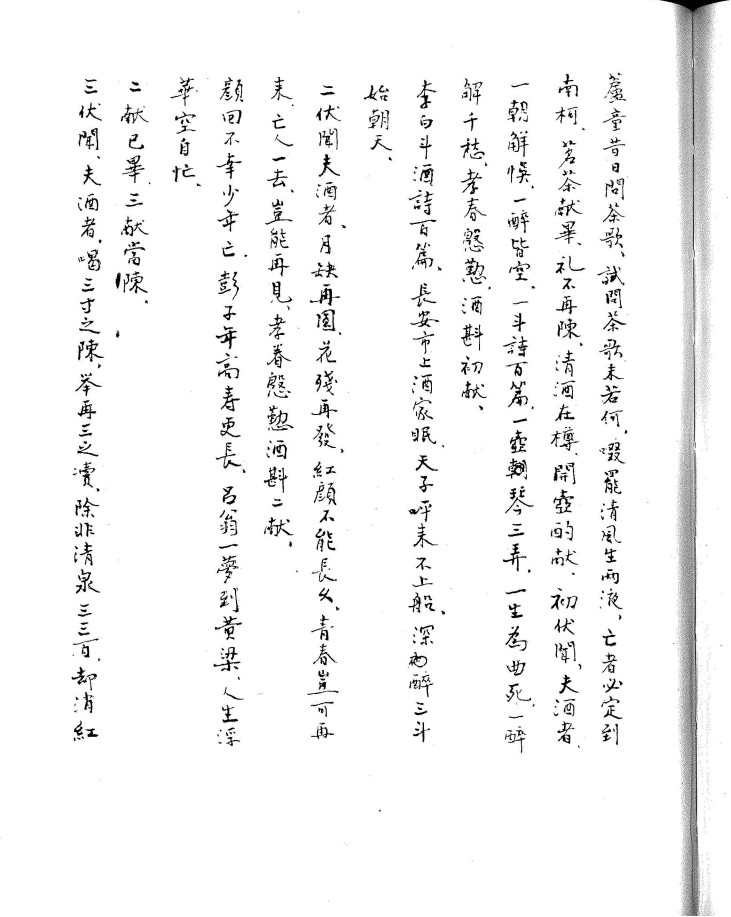 蘆童昔日問茶歌、試問茶歌未若何、啜罷清風生両液、亡者必定到
南柯、茗茶献畢、礼不再陳、清酒在樽、開壺酌献、初伏聞、夫酒者、
一朝解悞、一醉皆空、一斗詩百篇、一壺朝琴三弄、一生為曲死、一醉
解千愁、孝春慇懃、酒斟初献、
李白斗酒詩百篇、長安市上酒家眠、天子呼来不上船、深內醉三斗
始朝天、
二伏聞夫酒者、月缺再圆、花殘再發、紅顔不能長久、青春豈可再
来、亡人一去、豈能再見、孝眷慇懃酒斟二献、
顔回不幸少年亡、彭子年高寿更長、呂翁一夢到黄梁、人生浮
華空自忙、
二献已畢、三献當陳、
三伏聞、夫酒者、喝三寸之陳、举再三之瀆、除非清泉三三百、却消紅